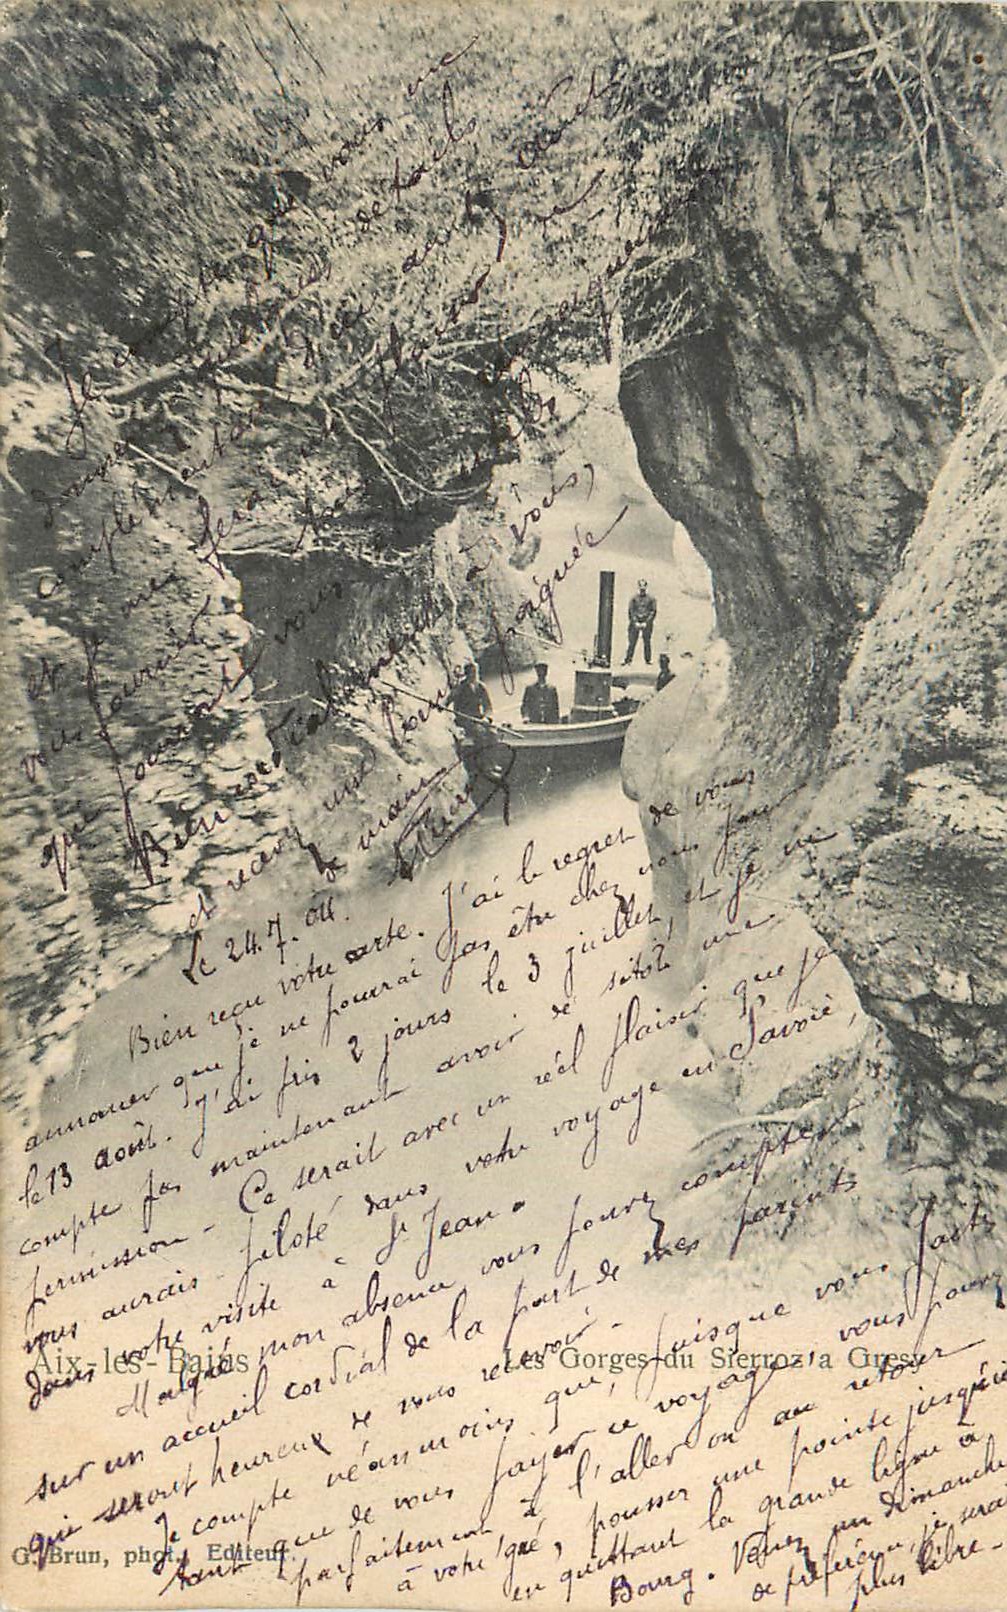 Le 24.7.04.
Bien reçu votre carte. J'ai le regret de vous
annoncer que je ne pourrai pas être chez vous pour
le 13 août. J'ai pris 2 jours le 3 juillet, et je ne
compte pas maintenant avoir de sitôt une
permission - Ce serait avec un réel plaisir que je
vous aurais piloté dans votre voyage en Savoie,
dans votre visite à St Jean.
Malgré mon absence vous pouvez compter
sur un accueil cordial de la part de mes parents
qui seront heureux de vous recevoir. -
Je compte néanmoins que, puisque vous faites
tant que de vous payer ce voyage, vous pourrez
parfaitement à l'aller ou au retour
à votre gré, pousser une pointe jusqu'ici
en quittant la grande ligne à
Bourg. Venez un dimanche
de préférence, je serai
plus libre. -
Je compte que vous me
donnerez quelques détails
complémentaires,
et je me ferai un plaisir de
vous fournir tous les
qui pourront vous
Bien cordialement à vous,
et recevez une bonne poignée
de main
Aix-les-Bains
Les Gorges du Sierroz à Grésy
G. Brun, phot. Editeur.